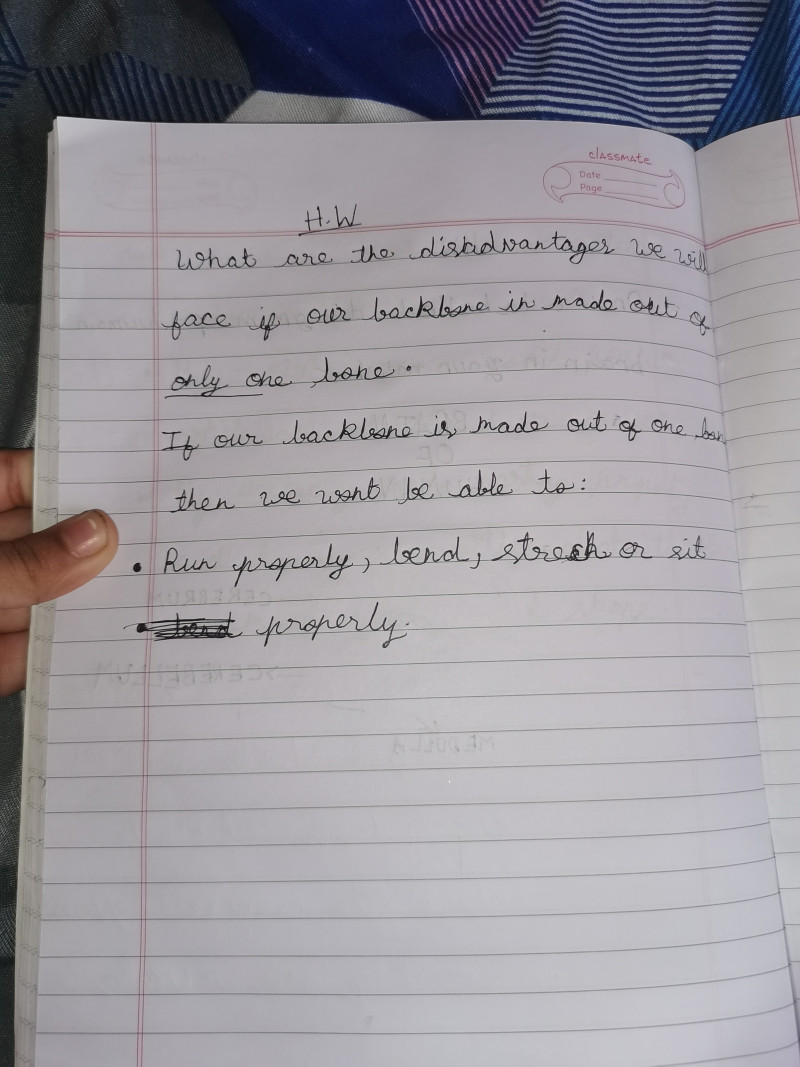 classmate
Date
Page
H.W
What are the disadvantages we will
face if our backbone in made out of
only one bone.
If our backbone is made out of one bon
then we wont be able to:
• Run properly, bend, strech or sit
bend properly.
CEREBRUM
CEREBELLUM
MEDULLA